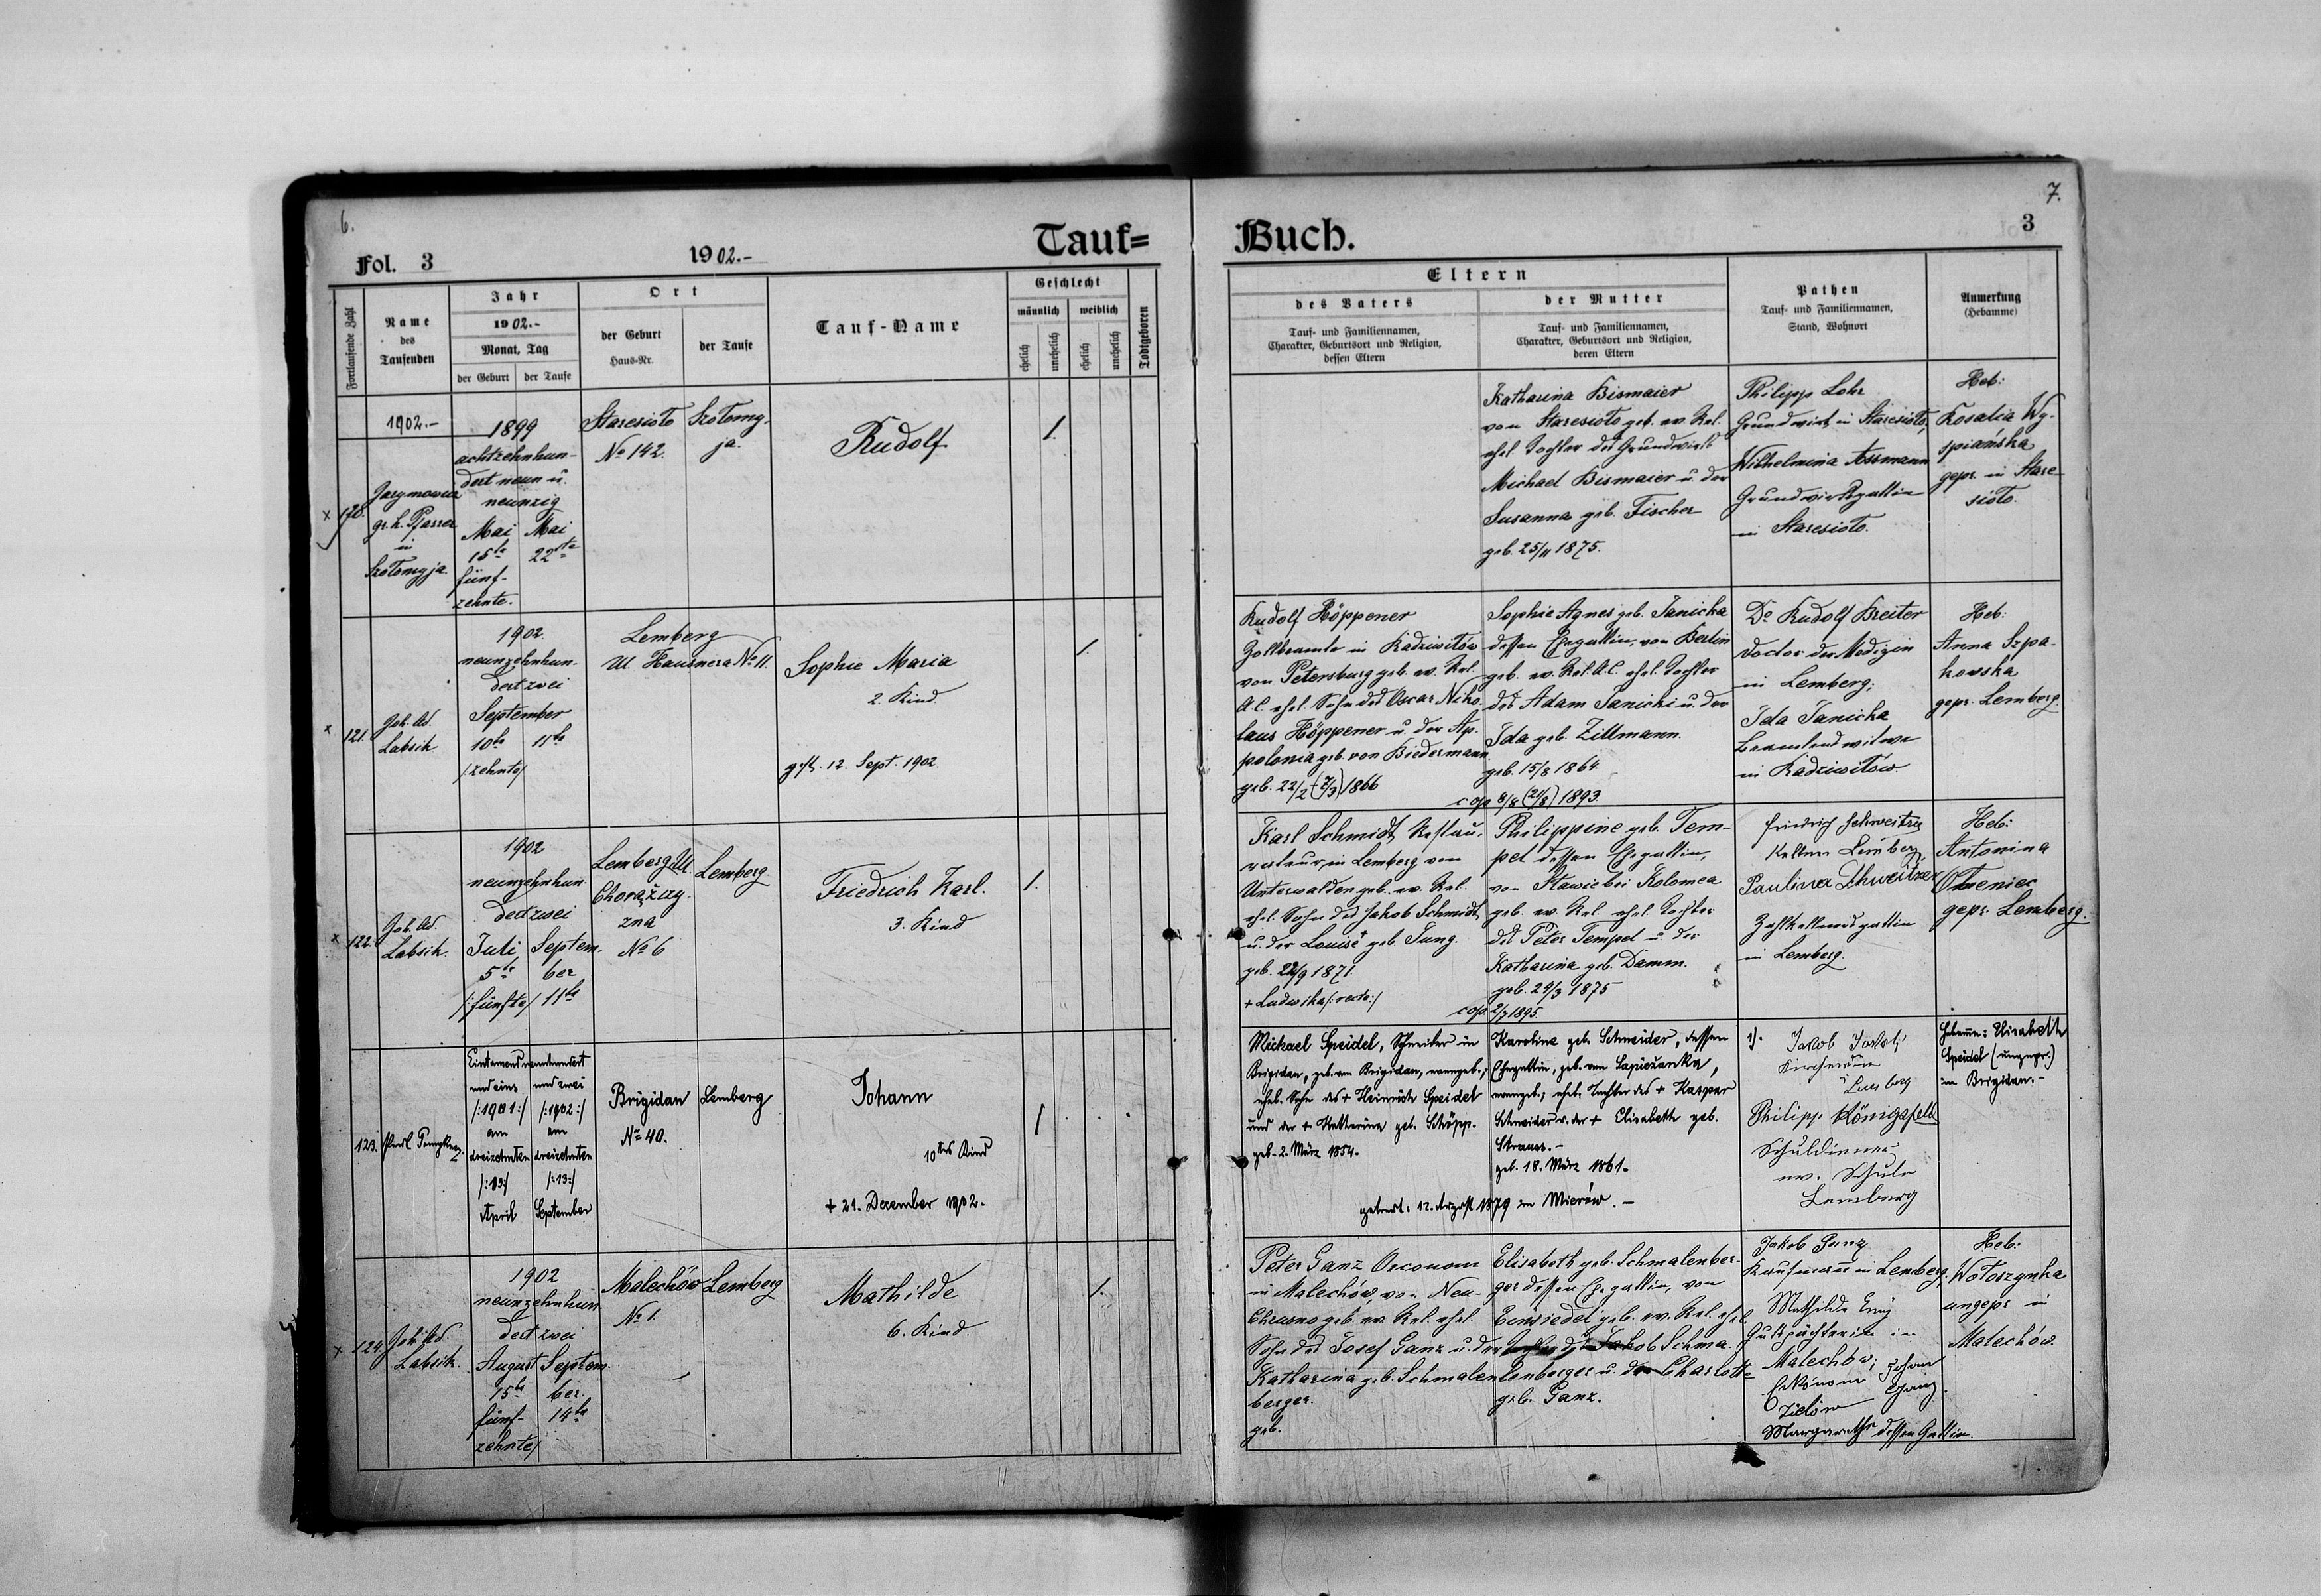 6.
Fol. 3
1902.-
Tauf=
Fortlaufende Zahl
Name
des
Taufenden
Jahr
1902.-
Monat, Tag
der Geburt
der Taufe
Ort
der Geburt
Haus-Nr.
der Taufe
Tauf-Name
Geschlecht
männlich
weiblich
ehelich
unehelich
ehelich
unehelich
Todtgeboren
1902.-
120.
gr. k. Pfarrer
in
1899
achtzehnhun-
dert neun u.
neunzig
Mai
15te
fünf-
zehnte.
Mai
22te
Staresioło
No 142.
ja.
Rudolf
1.
121.
Joh. Ad.
Labsik
1902.
neunzehnhun-
dert zwei
September
10te
11te
/:zehnte/
Lemberg
Ul. Hausnera No 11.
Sophie Maria
2. Kind.
gest. 12. Sept. 1902.
1.
122.
Joh. Ad.
Labsik.
1902
neunzehnhun-
dert zwei
Juli
5te
/:fünfte/
Septem-
ber
11te
Lemberg Ul.
Chorążczy-
zna
No 6
Lemberg.
Friedrich Karl.
3. Kind
1.
123.
und eins
/:1901:/
am
dreizehnten
/:13:/
April
und zwei
/:1902:/
am
dreizehnten
/:13:/
September
Brigidau
No 40.
Lemberg
Johann
10tes Kind
+ 21. Dezember 1902.
1
124.
Joh. Ad.
Labsik.
1902
neunzehnhun-
dert zwei
August
15te
fünf-
zehnte/
Septem-
ber.
14te
Malechów
No 1.
Lemberg
Mathilde
6. Kind.
1.
Buch.
7.
3
Eltern
des Vaters
Tauf- und Familiennamen,
Charakter, Geburtsort und Religion,
dessen Eltern
der Mutter
Tauf- und Familiennamen,
Charakter, Geburtsort und Religion,
deren Eltern
Pathen
Tauf- und Familiennamen,
Stand, Wohnort
Anmerkung
(Hebamme)
Katharina Bismaier
von Staresioło geb. ev. Rel.
ehel. Tochter des Grundwirts
Michael Bismaier u. der
Susanna geb. Fischer
geb. 25/11 1875.
Philipp Lohr
Grundwirt in Staresioło,
Wilhelmina Assmann
Grundwirtsgattin
in Staresioło.
Heb:
Rosalia Wy-
spiańska
gepr. in Stare-
sioło.
Rudolf Höppener
Zollbeamte in Radziwiłów
von Petersburg geb. ev. Rel.
A.C. ehel. Sohn des Oscar Niko-
laus Höppener u. der Ap-
polonia geb. von Biedermann
geb. 22/2 (7/3) 1866
Sophie Agnes geb. Janicka
dessen Ehegattin, von Berlin
geb. ev. Rel. A.C. ehel. Tochter
des Adam Janicki u. der
Ida geb. Zillmann.
geb. 15/8 1864.
cop. 8/8 (21/8) 1893.
Dr Rudolf Breiter
Doctor der Medizin
in Lemberg;
Ida Janicka
Beamtenswitwe
in Radziwiłów.
Heb:
Anna Szpa-
kowska
gepr. Lemberg.
Karl Schmidt, Restau-
rateur, in Lemberg von
Unterwalden geb. ev. Rel.
ehel. Sohn des Jakob Schmidt
u. der Louise+ geb. Jung.
geb. 22/9 1871.
+ Ludwika /:recte:/
Philippine geb. Tem-
pel dessen Ehegattin,
von Sławic bei Kolomea
geb. ev. Rel. ehel. Tochter
des Peter Tempel u. der
Katharina geb. Damm.
geb. 29/3 1875
cop. 2/7 1895.
Friedrich Schweitzer
Kellner Lemberg
Paulina Schweitzer
Zahlkellnersgattin
in Lemberg.
Heb:
Antonina
gepr. Lemberg.
Michael Speidel, Schneider in
Brigidau, geb. von Brigidau, evangel.,
ehel. Sohn des + Heinrich Speidel
und der + Katharina geb. Schöpp.
geb. 2. März 1854.
Karolina geb. Schneider, dessen
Ehegattin, geb. von Łapiczanka,
evangel., ehel. Tochter des + Kaspar
Schneider u. der + Elisabeth geb.
Strauss.-
geb. 18. März 1861.
getraut: 12. August 1879 in Mierów.-
1).
Jakob
Lemberg
Philipp Königsfeld
Schuldiener
ev. Schule
Lemberg
Hebamme: Elisabeth
Speidel (ungepr.)
in Brigidau.-
Peter Ganz Oeconom
in Malechów, von Neu-
Chrusno geb. ev. Rel. ehel.
Sohn des Josef Ganz u. der
Katharina geb. Schmalen-
berger.
geb.
Elisabeth geb. Schmalenber-
ger dessen Ehegattin, von
Einsiedel geb. ev. Rel. ehel.
Tochter des Jakob Schma-
lenberger u. der Charlotte
geb. Ganz.
Jakob Ganz
Kaufmann in Lemberg,
Mathilde
Gutspächterin in
Malechów; Johann
Ökonom Ganz
Margarethe dessen Gattin.
Heb:
Wołoszynka
ungepr. in
Malechów.